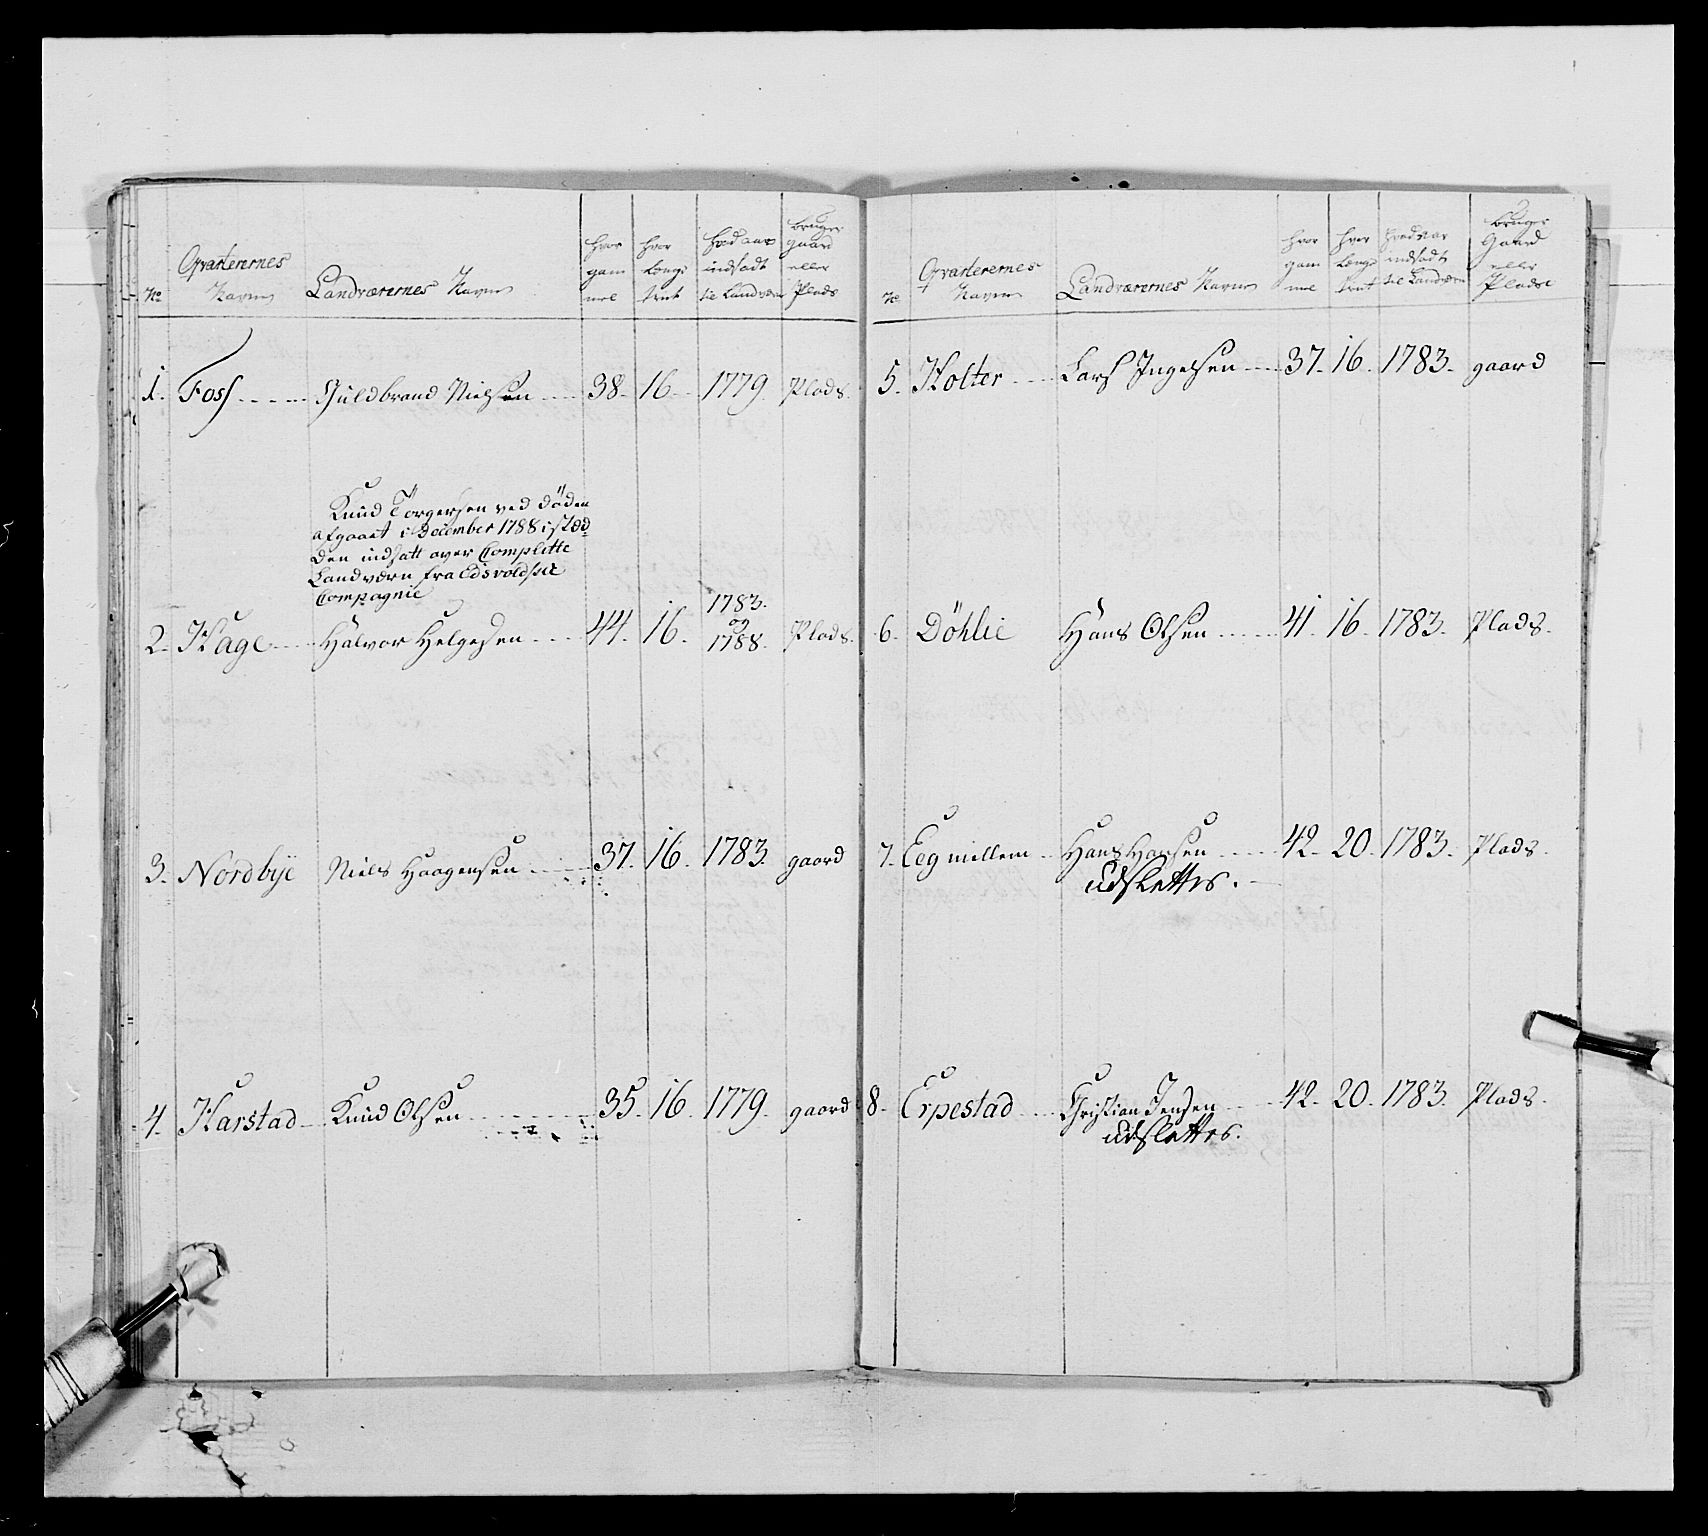 No Qvarterernes Navne Landværernes Navne hvor gammel hvor længe tient hvad aar indsadt til Landværn bruger gaard eller Plads
1. Foss Guldbrand Nielsen 38. 16. 1779. Plads.
Knud Törgersen ved döden
afgaaet i December 1788 i stæd
den indsatt over Complette
Landværn fra Edsvoldske
Compagnie
2. Hage Halvor Helgesen 44. 16. 1783. og 1788. Plads.
3. Nordbÿe Niels Haagensen 37. 16. 1783. gaard
4. Harstad Knud Olsen 35. 16. 1779. gaard
No Qvarterernes Navne Landværernes Navne hvor gammel hvor længe tient hvad aar indsadt til Landværn bruger Gaard eller Plads
5. Holter Lars Ingelsen 37. 16. 1783. gaard
6. Döhlie Hans Olsen 41. 16. 1783. Plads.
7. Eeg millem Hans Hansen 42. 20. 1783. Plads.
udslettes.
8. Erpestad Christian Jensen 42. 20. 1783. Plads.
udslettes.